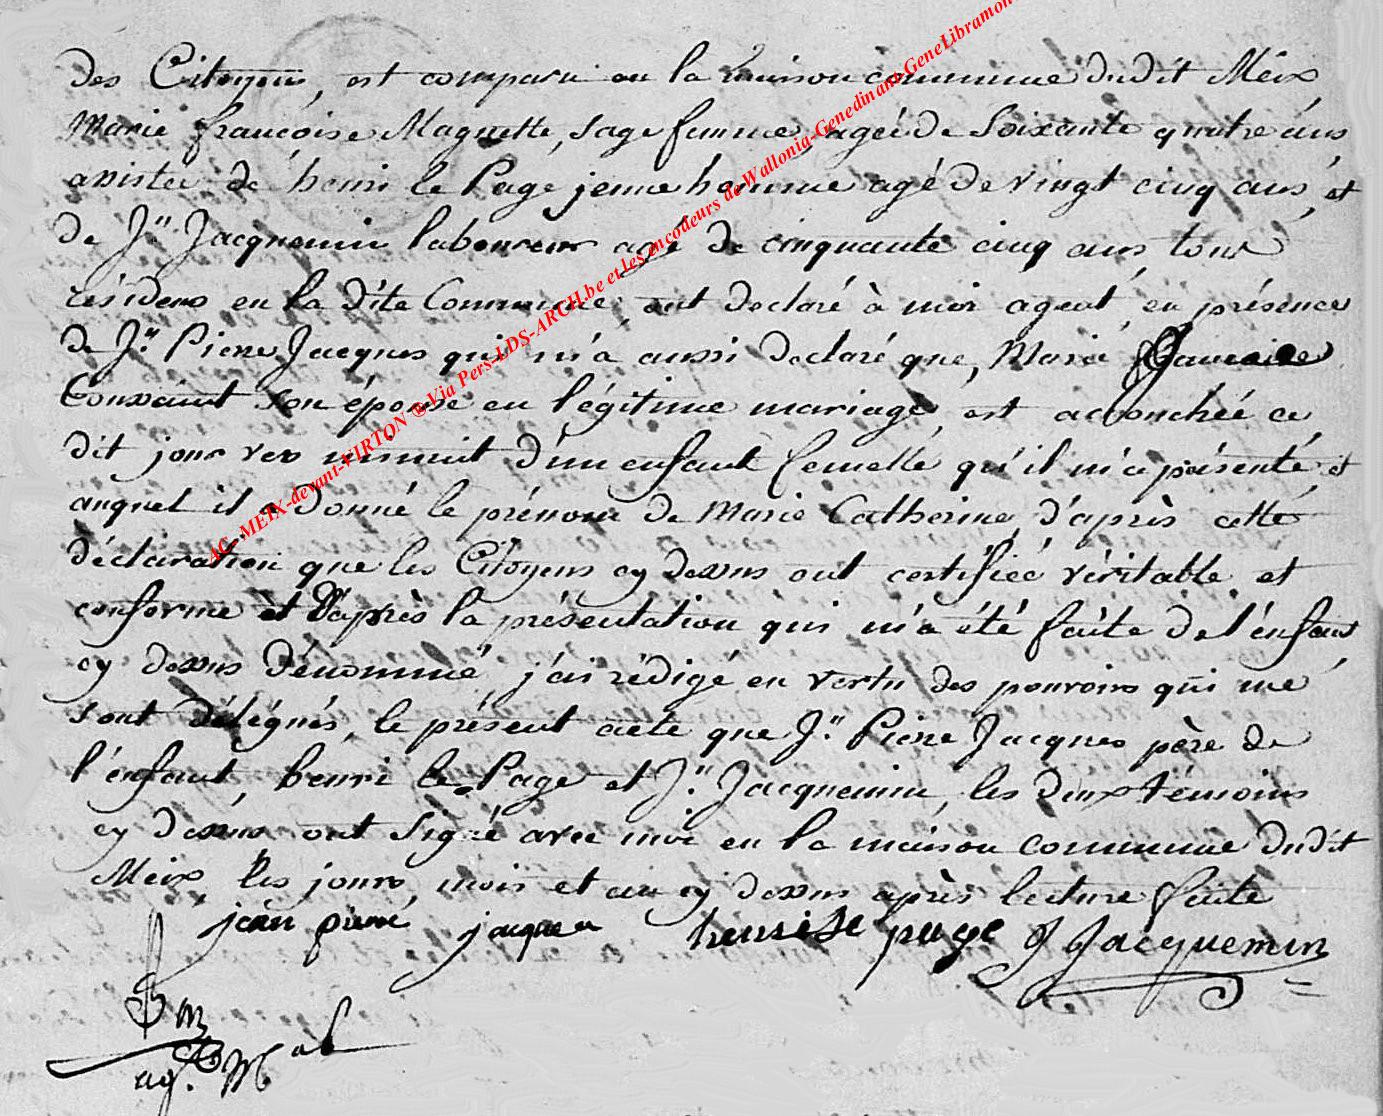 des Citoyens, est comparu en la maison commune dudit Meix
Marie françoise Maguette, sage femme, agée de soixante quatre ans
assistée de henri le Page jeune homme agé de vingt cinq ans, et
de Jn. Jacquemin laboureur agé de cinquante cinq ans tous
résidens en la dite Commune, ont declaré à moi agent, en présence
de Jn. Pierre Jacques qui m'a aussi declaré que, Marie françoise
son épouse en légitime mariage, est accouchée ce
dit jour vers minuit d'un enfant femelle qu'il m'a présenté, et
auquel il a donné le prénom de Marie Catherine, d'après cette
déclaration que les Citoyens cy dessus ont certifiée véritable et
conforme et d'après la présentation qui m'a été faite de l'enfant
cy dessus dénommé j'ai rédigé en vertu des pouvoirs qui me
sont délégués, le présent acte que Jn. Pierre Jacques père de
l'enfant, henri le Page et Jn. Jacquemin, les deux témoins
cy dessus ont signé avec moi en la maison commune dudit
Meix, les jours, mois et an cy dessus après lecture faite
jean pierre jacques henri le page J Jacquemin
AC-MEIX-devant-VIRTON ® Via Pers-LDS-ARCH.be et les encodeurs de Wallonia-Genedinant-GeneLibramon